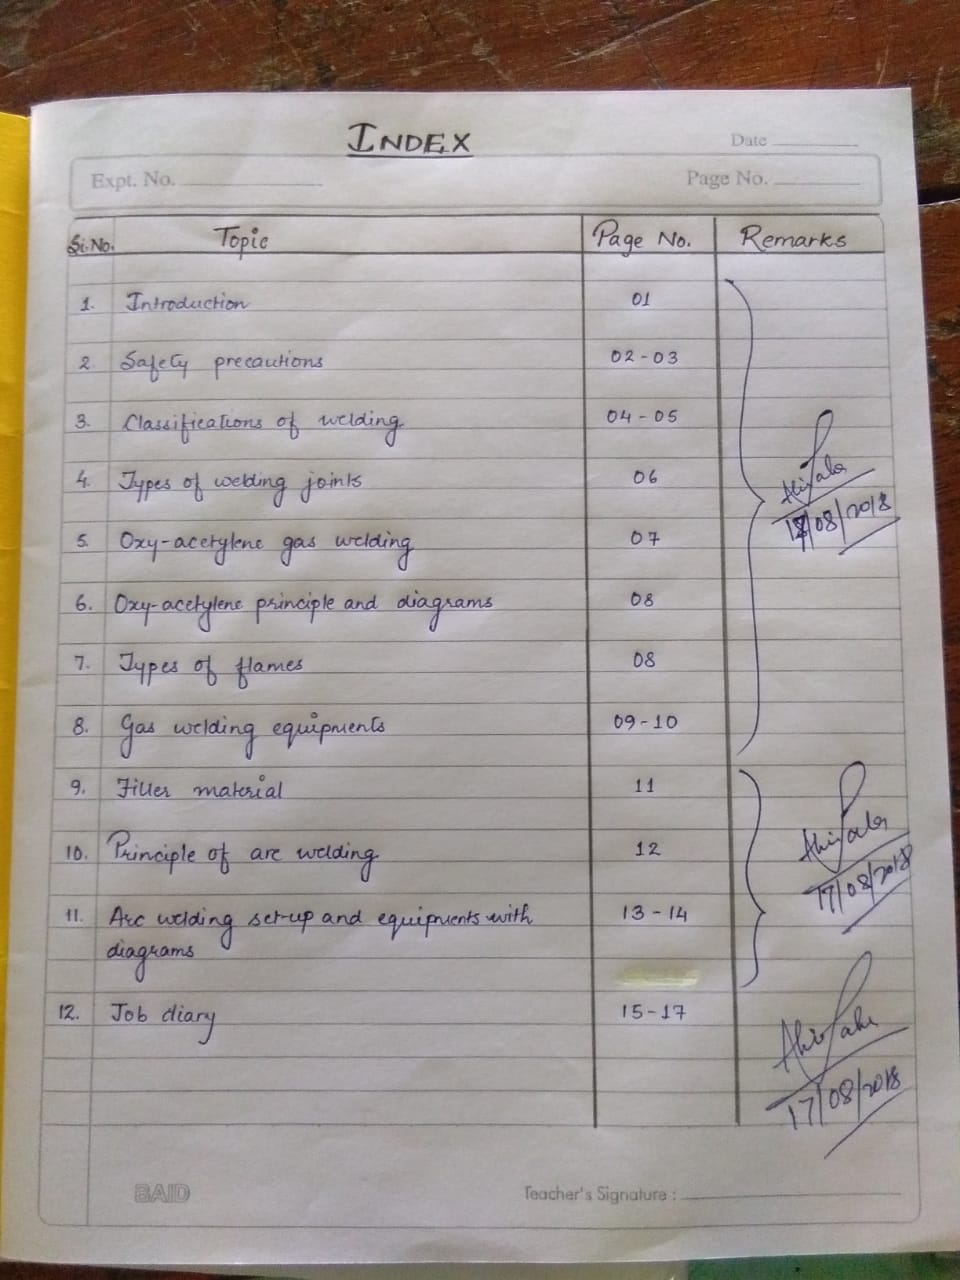 INDEX
Date
Expt. No.
Page No.
Sl.No. Topic Page No. Remarks
1. Introduction 01
2. Safety precautions 02-03
3. Classifications of welding 04-05
4. Types of welding joints 06
5. Oxy-acetylene gas welding 07
6. Oxy-acetylene principle and diagrams 08
7. Types of flames 08
8. Gas welding equipments 09-10
9. Filler material 11
10. Principle of arc welding 12
11. Arc welding set-up and equipments with 13-14
diagrams
12. Job diary 15-17
/08/2018
17/08/2018
17/08/2018
BAID
Teacher's Signature :